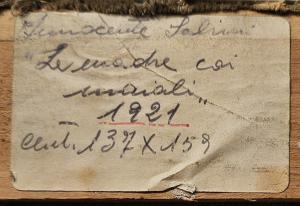 Innocente Salvini
"La madre coi
maiali„
1921
cent. 137 X 159